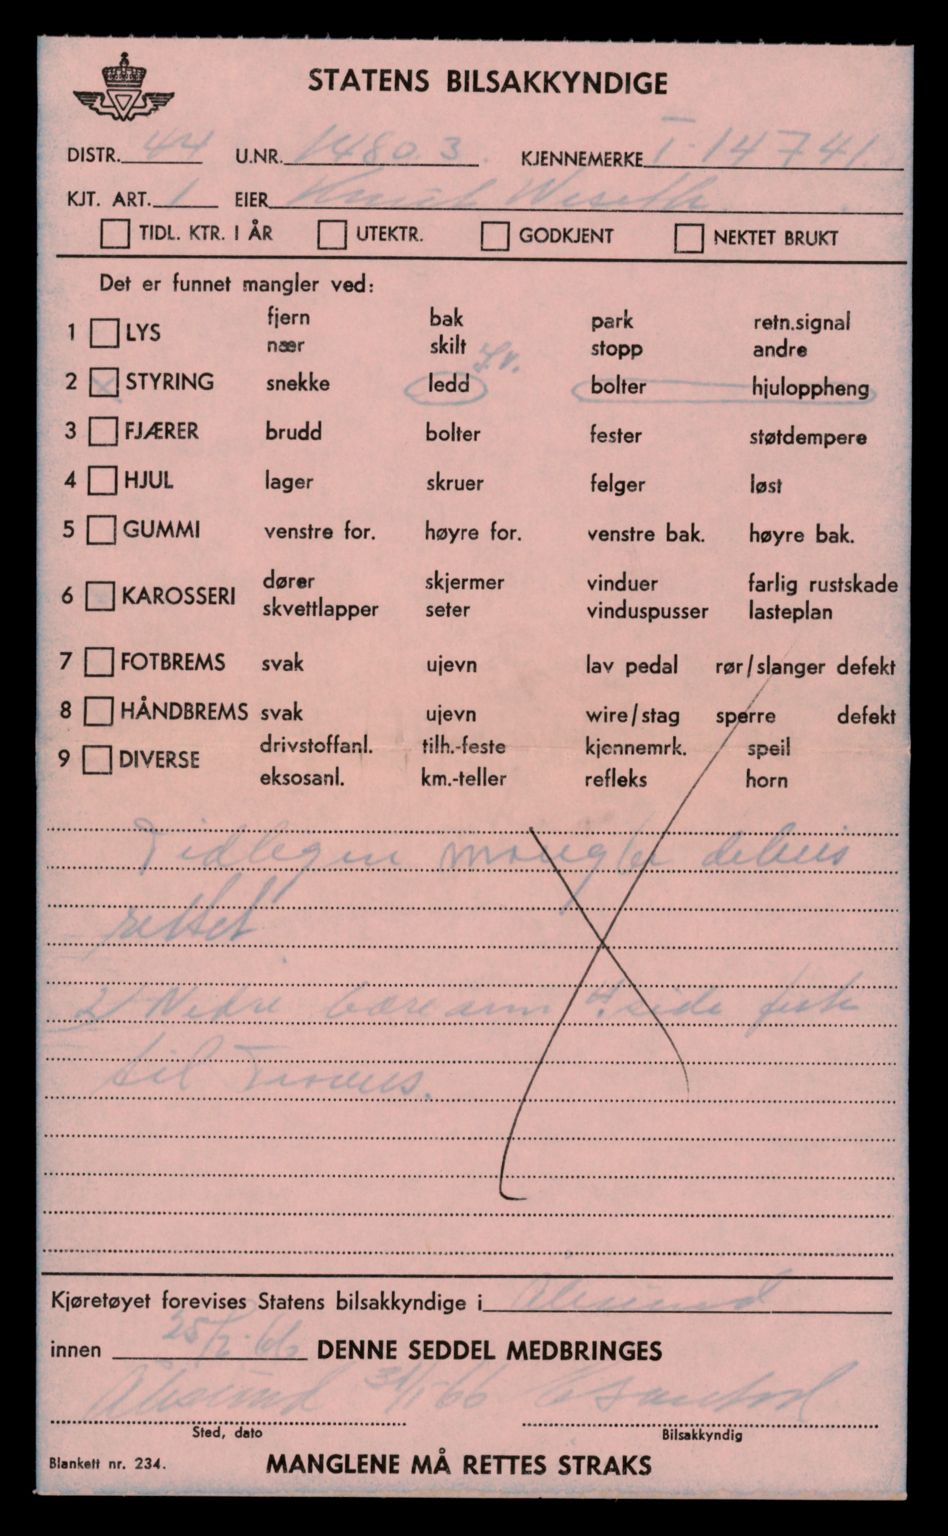 STATENS BILSAKKYNDIGE
DISTR. 44 U.NR. 14803 KJENNEMERKE T-14741
KJT. ART. 1 EIER Knut
TIDL. KTR. I ÅR UTEKTR. GODKJENT NEKTET BRUKT
Det er funnet mangler ved:
1 LYS fjern bak park retn.signal
nær skilt stopp andre
2 STYRING snekke ledd bolter hjuloppheng
3 FJÆRER brudd bolter fester støtdempere
4 HJUL lager skruer felger løst
5 GUMMI venstre for. høyre for. venstre bak. høyre bak.
6 KAROSSERI dører skjermer vinduer farlig rustskade
skvettlapper seter vinduspusser lasteplan
7 FOTBREMS svak ujevn lav pedal rør/slanger defekt
8 HÅNDBREMS svak ujevn wire/stag sperre defekt
9 DIVERSE drivstoffanl. tilh.-feste kjennemrk. speil
eksosanl. km.-teller refleks horn
Tidlegen mangler delvis
rettet
2/ Nedre bærearm side
til
Kjøretøyet forevises Statens bilsakkyndige i Ålesund
innen 25/2-66 DENNE SEDDEL MEDBRINGES
Ålesund 31/1-66
Sted, dato Bilsakkyndig
Blankett nr. 234. MANGLENE MÅ RETTES STRAKS